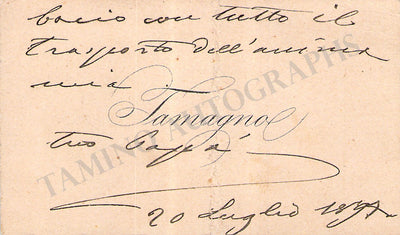 bacio con tutto il
trasporto dell'anima
mia
Tamagno
tuo Papà
20 Luglio 1897
TAMINO AUTOGRAPHS